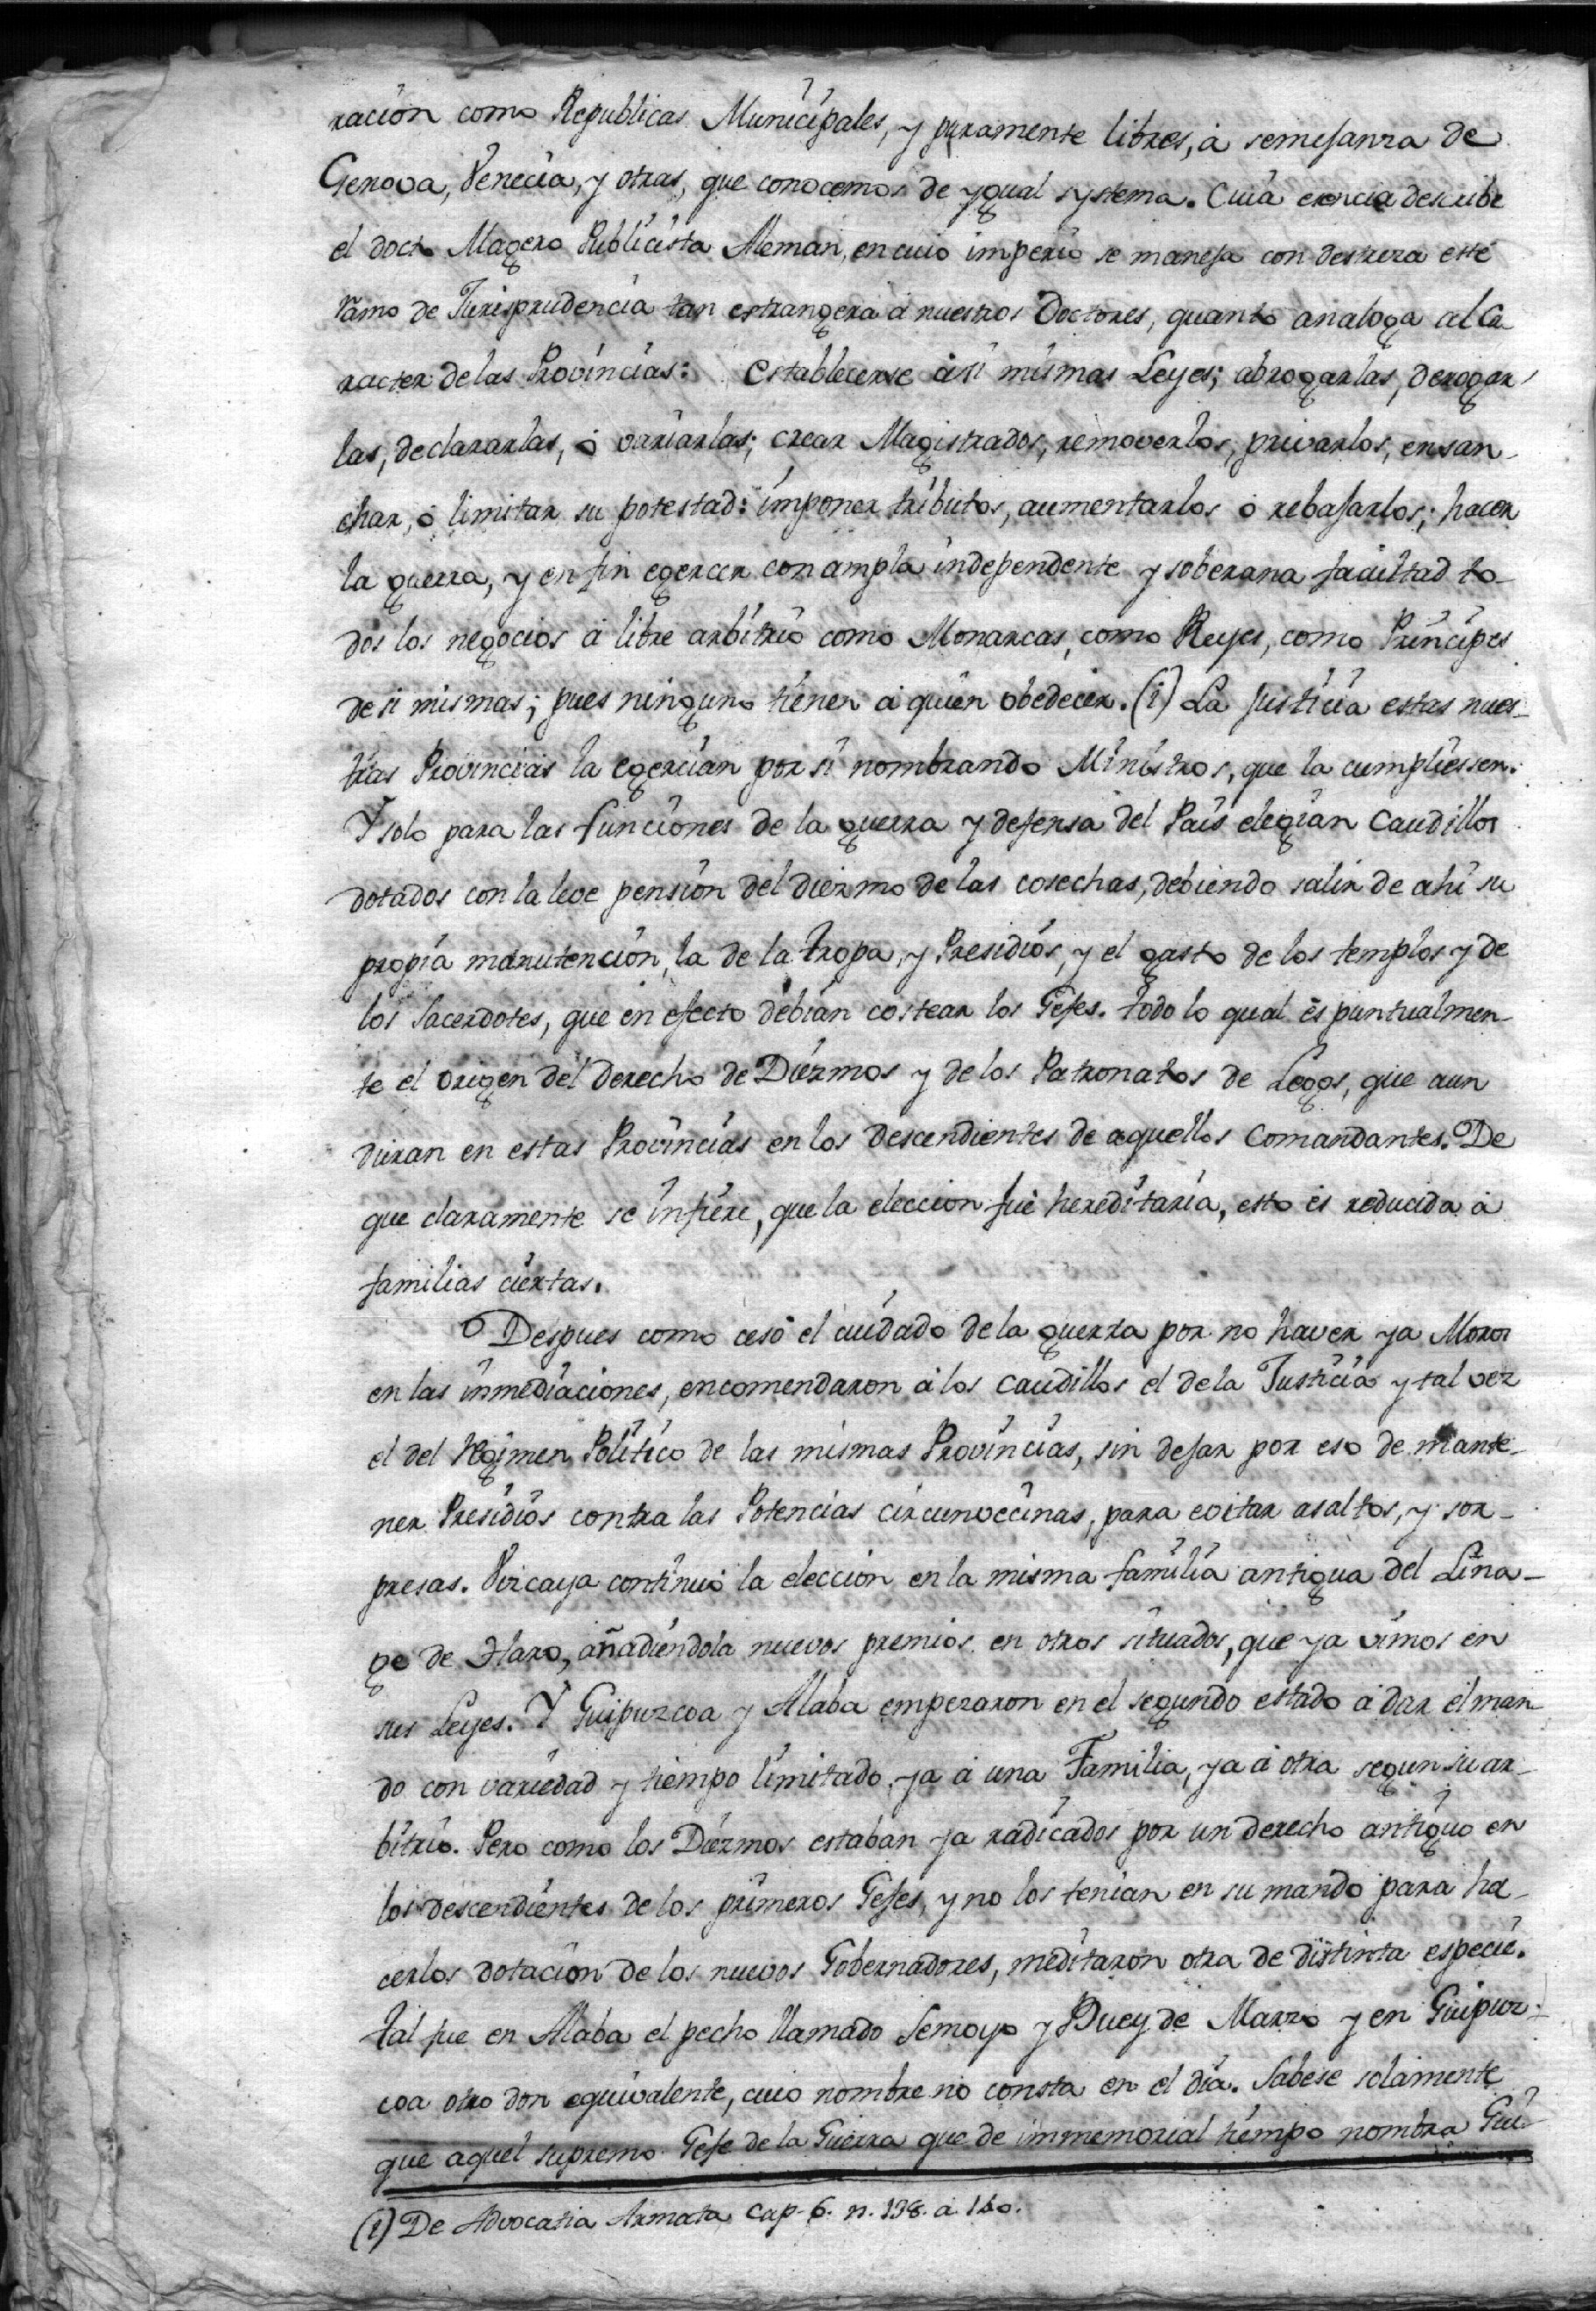 racion como Republicas Municipales, y puramente libres, á semejanza de
Genova, Venecia, y otras, que conocemos de ygual systema. Cuia esencia describe
el docto Magero Publicista Aleman, en cuio imperio se maneja con destreza este
ramo de Jurisprudencia tan estrangera á nuestros Doctores, quanto analoga al Ca
racter de las Provincias: establecerse á si mismas Leyes; abrogarlas, derogar
las, declararlas, ó variarlas; crear Magistrados, removerlos, privarlos, ensan-
char, ó limitar su potestad: imponer tributos, aumentarlos ó rebajarlos; hacer
la guerra, y en fin egercer con ampla independente y soberana facultad to-
dos los negocios á libre arbitrio como Monarcas, como Reyes, como Principes
de si mismas; pues ninguno tienen á quien obedecer. (i) La justicia estas nues-
tras Provincias la egercian por si nombrando Ministros, que la cumpliessen.
Y solo para las funciones de la guerra y defensa del Pais elegian Caudillos
dotados con la leve pension del diezmo de las cosechas, debiendo salir de ahi su
propia manutencion, la de la tropa, y Presidios, y el gasto de los templos y de
los Sacerdotes, que en efecto debian costear los Gefes. todo lo qual es puntualmen-
te el origen del derecho de Diezmos y de los Patronatos de Legos, que aun
duran en estas Provincias en los descendientes de aquellos Comandantes. De
que claramente se infiere, que la eleccion fué hereditaria, esto es reducida á
familias ciertas.
Despues como cesó el cuidado de la guerra por no haver ya Moros
en las inmediaciones, encomendaron á los Caudillos el de la Justicia y tal vez
el del Regimen Politico de las mismas Provincias, sin dejar por eso de mante-
ner Presidios contra las Potencias circunvecinas, para evitar asaltos, y sor-
presas. Vizcaya continuó la eleccion en la misma familia antigua del Lina-
ge de Haro, añadiendola nuevos premios en otros situados, que ya vimos en
sus Leyes. Y Guipuzcoa y Alaba empezaron en el segundo estado á dar el man
do con variedad y tiempo limitado ya á una Familia, ya á otra segun su ar-
bitrio. Pero como los Diezmos estaban ya radicados por un derecho antiguo en
los descendientes de los primeros Gefes, y no los tenian en su mando para ha-
cerlos dotacion de los nuevos Gobernadores, meditaron otra de distinta especie.
tal fue en Alaba el pecho llamado Semoyo y Buey de Marzo y en Guipuz-
coa otro don equivalente, cuio nombre no consta en el dia. Sabese solamente
que aquel supremo Gefe de la Guerra que de immemorial tiempo nombra Gui-
(i) De Advocatia Armata Cap. 6. n. 138. á 140.